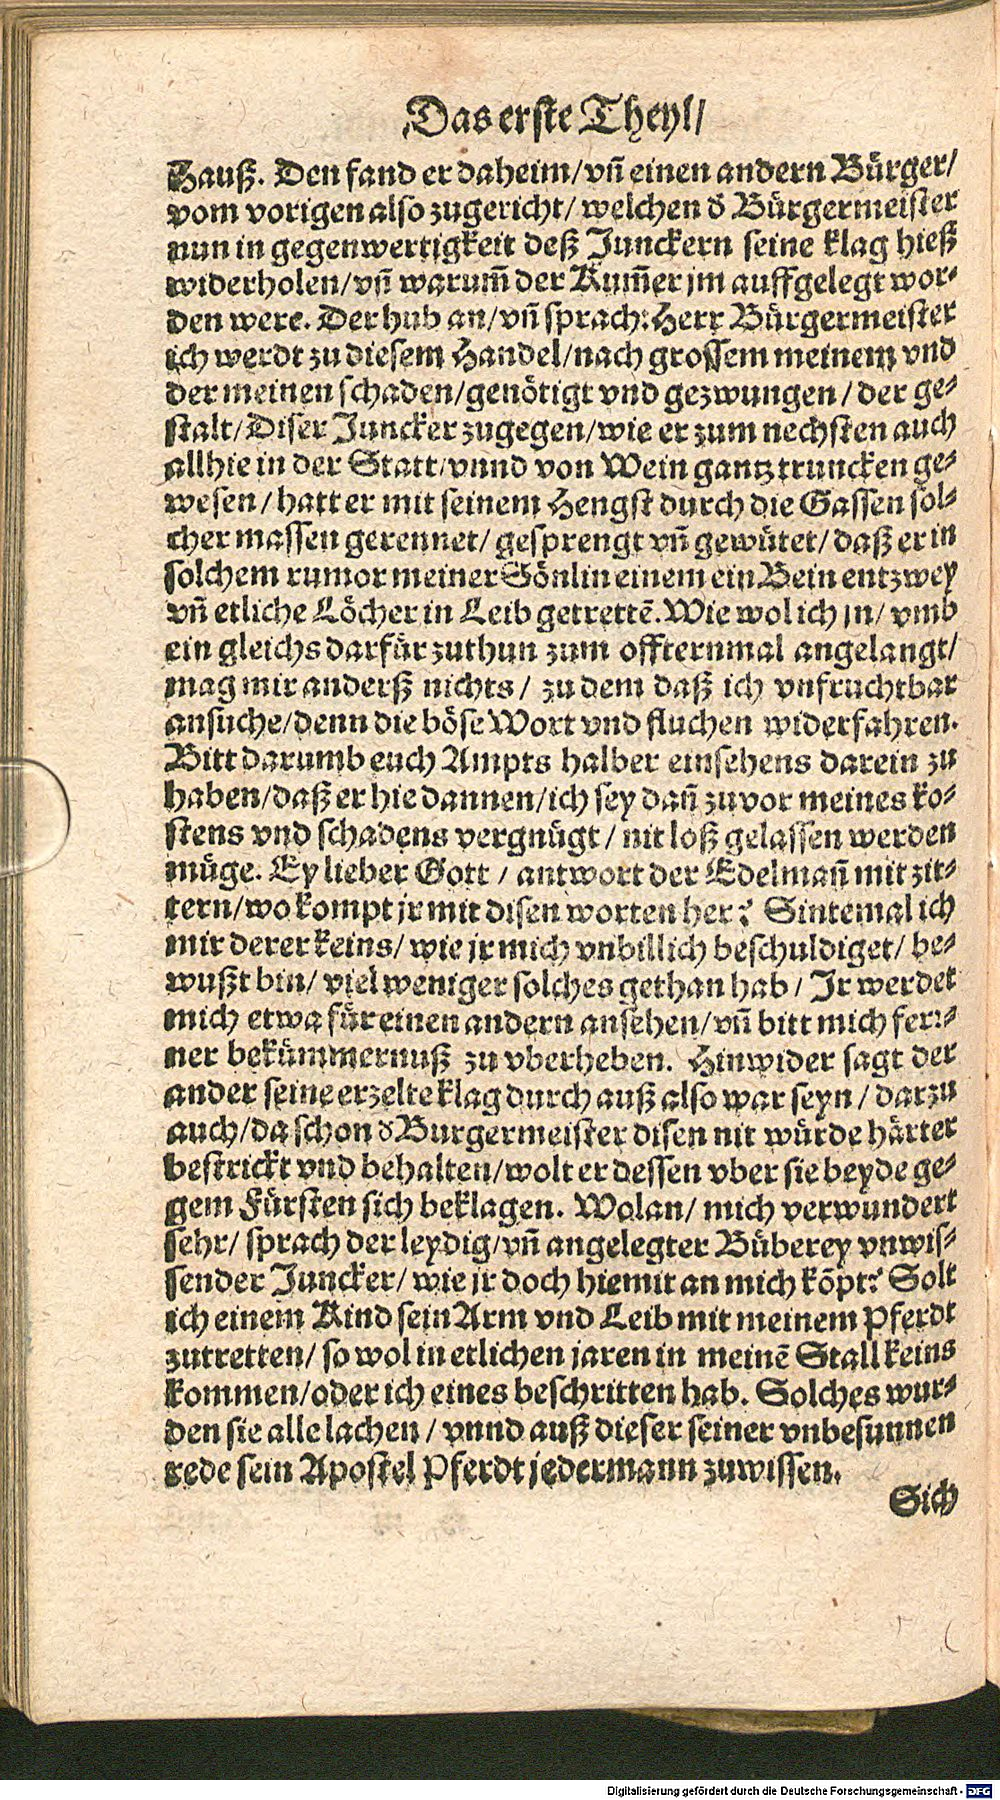 Das erste Theyl/
Hauß. Den fand er daheim/vñ einen andern Bürger/
vom vorigen also zugericht/ welchen d̓ Bürgermeister
nun in gegenwertigkeit deß Junckern seine klag hieß
widerholen/vñ warum̃ der Kum̃er jm auffgelegt wor-
den were. Der hub an/vñ sprach: Herr Bürgermeister
ich werdt zu diesem Handel/nach grossem meinem vnd
der meinen schaden/genötigt vnd gezwungen/ der ge-
stalt/Diser Juncker zugegen/wie er zum nechsten auch
allhie in der Statt/vnnd von Wein gantz truncken ge-
wesen/ hatt er mit seinem Hengst durch die Gassen sol-
cher massen gerennet/ gesprengt vñ gewütet/ daß er in
solchem rumor meiner Sönlin einem ein Bein entzwey
vñ etliche Löcher in Leib gettettẽ. Wie wol ich jn/ vmb
ein gleichs darfür zuthun zum offternmal angelangt/
mag mir anderß nichts/ zu dem daß ich vnfruchtbar
ansuche/denn die böse Wort vnd fluchen widerfahren.
Bitt darumb euch Ampts halber einsehens darein zu
haben/daß er hie dannen/ich sey dañ zuvor meines ko-
stens vnd schadens vergnügt/ nit loß gelassen werden
müge. Ey lieber Gott/ antwort der Edelmañ mit zit-
tern/wo kompt jr mit disen worten her? Sintemal ich
mir derer keins/ wie jr mich vnbillich beschuldiget/ be-
wußt bin/ viel weniger solches gethan hab/ Jr werdet
mich etwa für einen andern ansehen/vñ bitt mich fer:-
ner bekümmernuß zu vberheben. Hinwider sagt der
ander seine erzelte klag durch auß also war seyn/ darzu
auch/da schon d̓ Burgermeister disen nit würde härter
bestrickt vnd behalten/wolt er dessen vber sie beyde ge-
gem Fürsten sich beklagen. Wolan/ mich verwundert
sehr/ sprach der leydig/vñ angelegter Büberey vnwis-
sender Juncker/ wie jr doch hiemit an mich kõpt? Solt
ich einem Kind sein Arm vnd Leib mit meinem Pferdt
zutretten/ so wol in etlichen jaren in meinẽ Stall keins
kommen/oder ich eines beschritten hab. Solches wur-
den sie alle lachen/ vnnd auß dieser seiner vnbesunnen
rede sein Apostel Pferdt jedermann zuwissen.
Sich
Digitalisierung gefördert durch die Deutsche Forschungsgemeinschaft - DFG